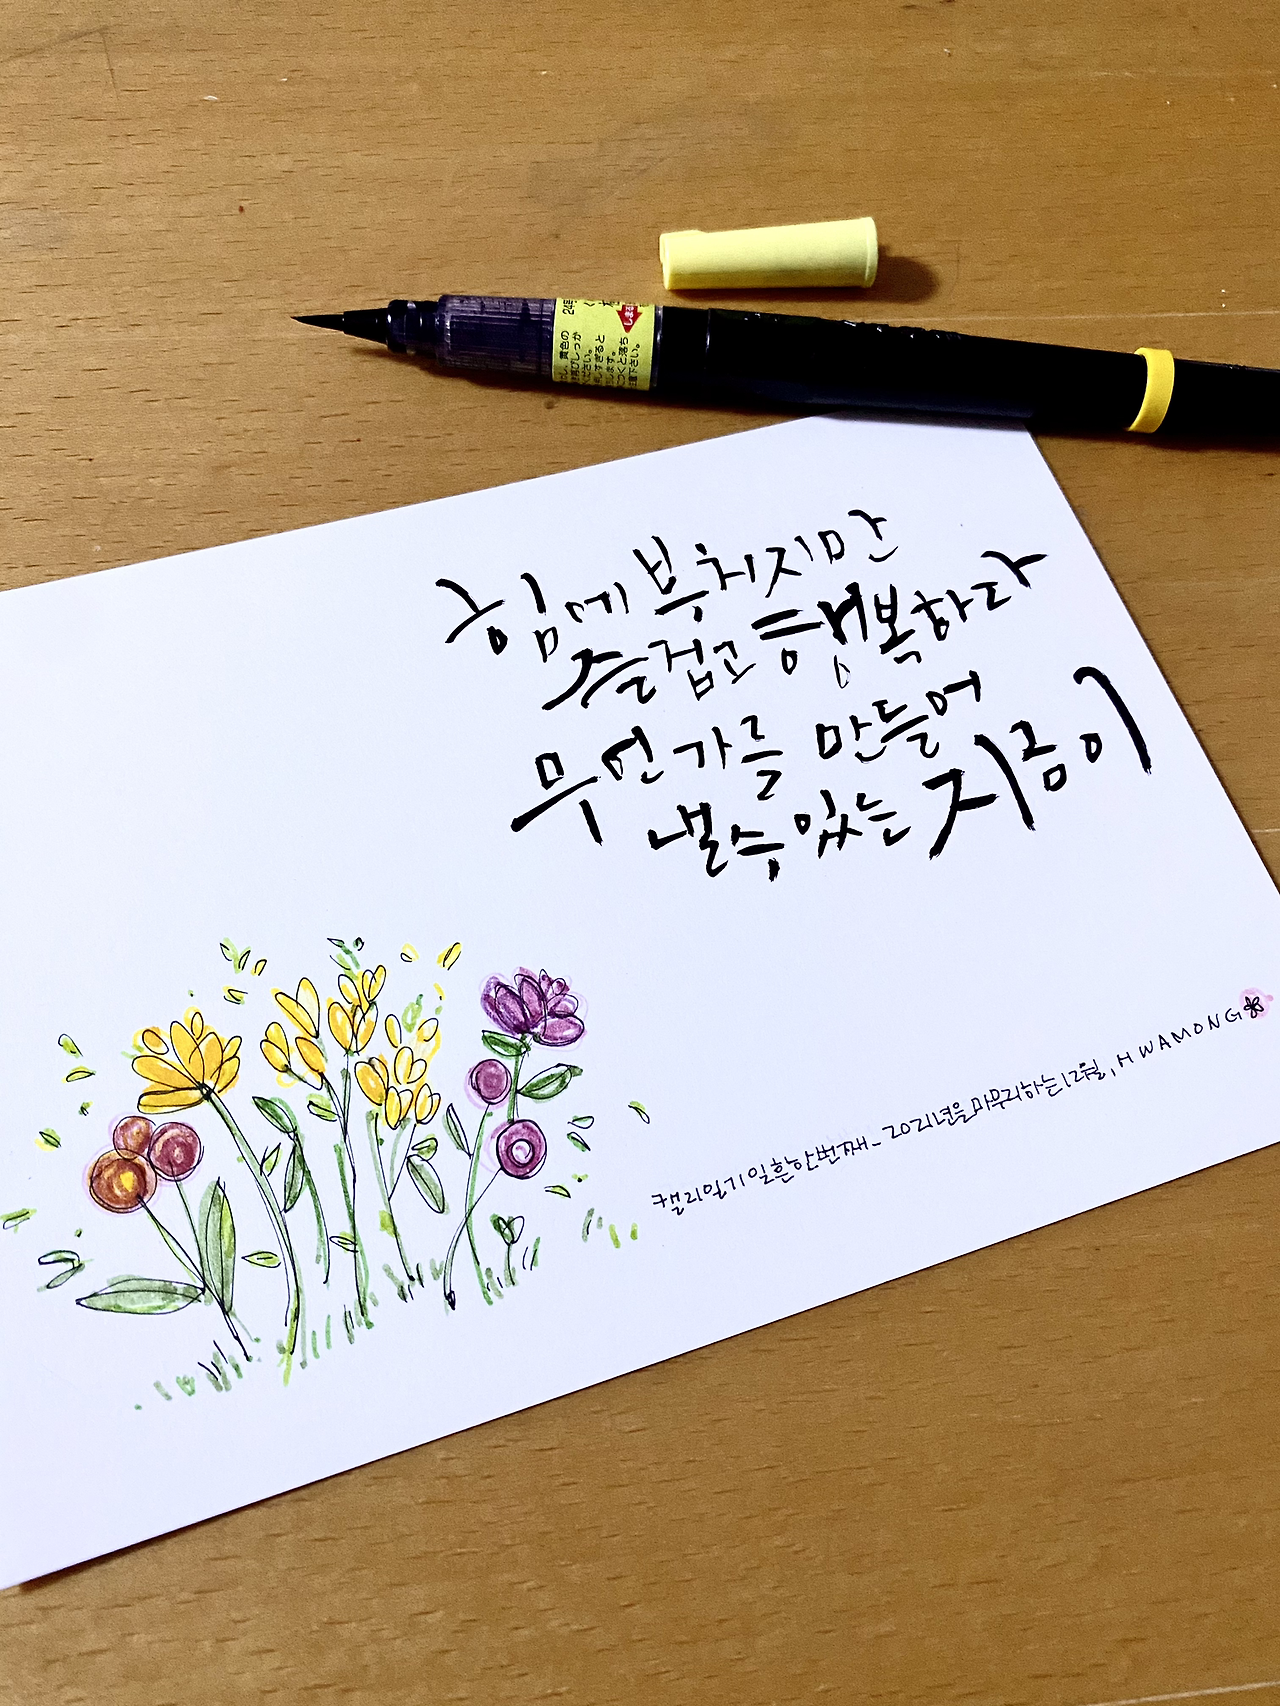 힘에 부치지만
즐겁고 행복하다
무언가를 만들어
낼 수 있는 지금이
캘리일기 일흔한번째 - 2021년을 마무리하는 12월, HWAMONG